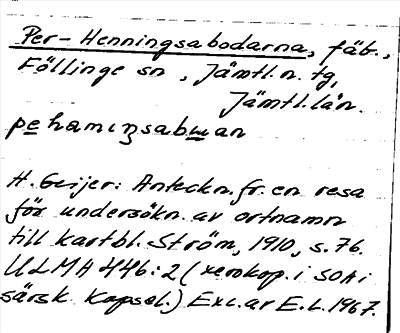 Per-Henningsabodarna, fäb.,
Föllinge sn, Jämtl.n. tg,
Jämtl.län.
pehamıŋsabɯan
H. Geijer: Anteckn. fr. en resa
för undersökn. av ortnamn
till kartbl. Ström, 1910, s. 76.
ULMA 446:2 (xerokop. i SOA i
särsk. kapsel.) Exc. av E.L. 1967.